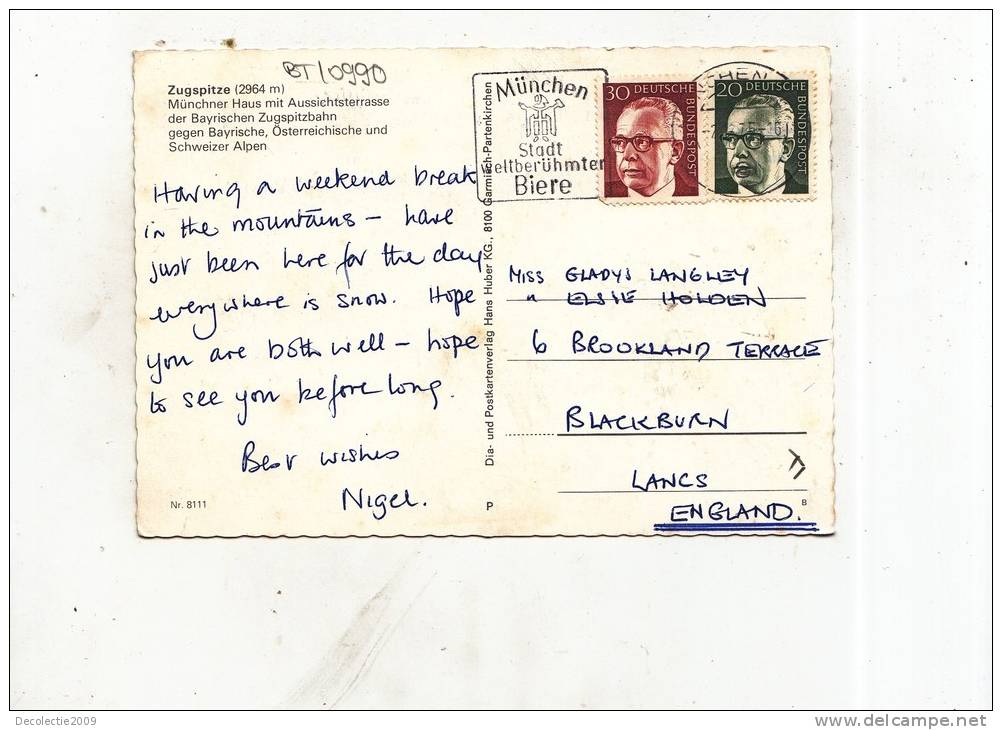 BT10990
Zugspitze (2964 m)
Münchner Haus mit Aussichtsterrasse
der Bayrischen Zugspitzbahn
gegen Bayrische, Österreichische und
Schweizer Alpen
Having a weekend break
in the mountains – have
just been here for the day
everywhere is snow. Hope
you are both well – hope
to see you before long.
Best wishes
Nigel.
Nr. 8111
Dia- und Postkartenverlag Hans Huber KG., 8100 Garmisch-Partenkirchen
P
München
Stadt
weltberühmter
Biere
30 DEUTSCHE
BUNDESPOST
20 DEUTSCHE
BUNDESPOST
MISS GLADYS LANGLEY
" ELSIE HOLDEN
6 BROOKLAND TERRACE
BLACKBURN
LANCS
ENGLAND.
B
Decolectie2009
delcampe.net